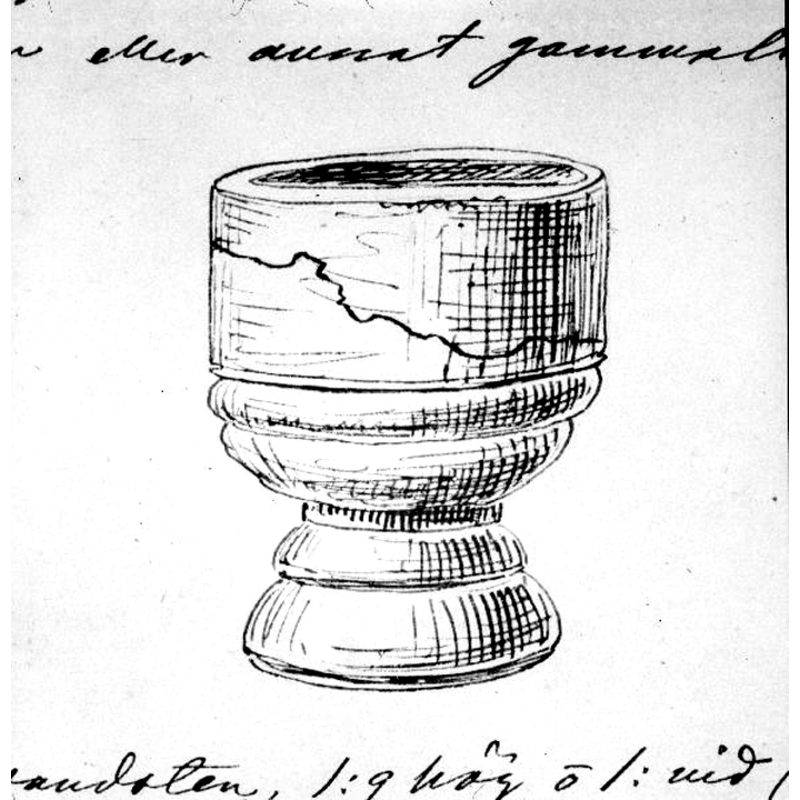 eller annat gammalt
sandsten, 1:9 hög o 1: vid